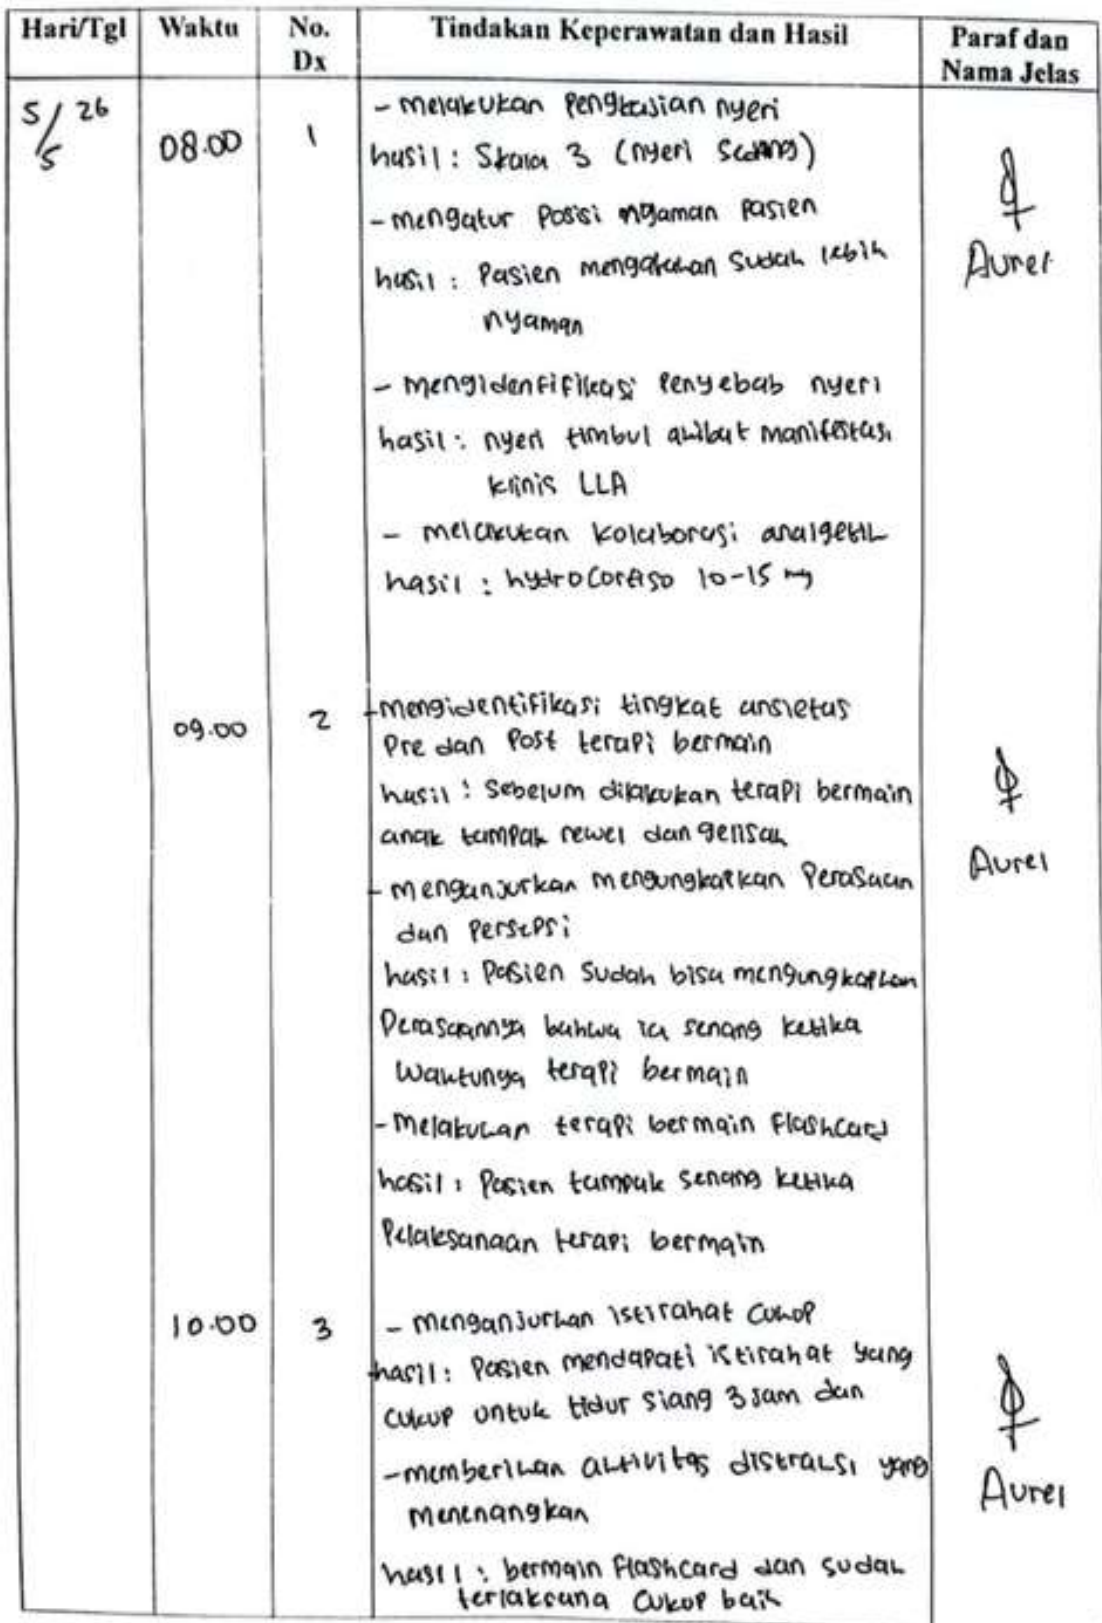 Hari/Tgl Waktu No. Dx Tindakan Keperawatan dan Hasil Paraf dan Nama Jelas
5/5 26 08.00 1 - melakukan Pengkajian nyeri
hasil : Skala 3 (nyeri sedang)
- mengatur Posisi nyaman pasien
hasil : Pasien mengatakan sudah lebih
nyaman
Aurel
- mengidentifikasi Penyebab nyeri
hasil : nyeri timbul akibat manifestasi
klinis LLA
- melakukan kolaborasi analgetik
hasil : hydrocortiso 10-15 mg
09.00 2 -mengidentifikasi tingkat ansietas
Pre dan Post terapi bermain
hasil : Sebelum dilakukan terapi bermain
anak tampak rewel dan gelisah
Aurel
- menganjurkan mengungkapkan Perasaan
dan Persepsi
hasil : Pasien Sudah bisa mengungkapkan
Perasaannya bahwa ia senang ketika
waktunya terapi bermain
- Melakukan terapi bermain Flashcard
hasil : Pasien tampak senang ketika
Pelaksanaan terapi bermain
10.00 3 - menganjurkan istirahat cukup
hasil : Pasien mendapati istirahat yang
cukup untuk tidur siang 3 jam dan
- memberikan aktivitas distraksi yang
menenangkan
Aurel
hasil : bermain Flashcard dan sudah
terlaksana cukup baik